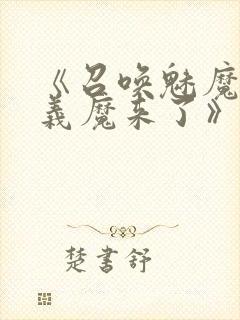 《召唤魅魔
義魔来了》
楚書舒